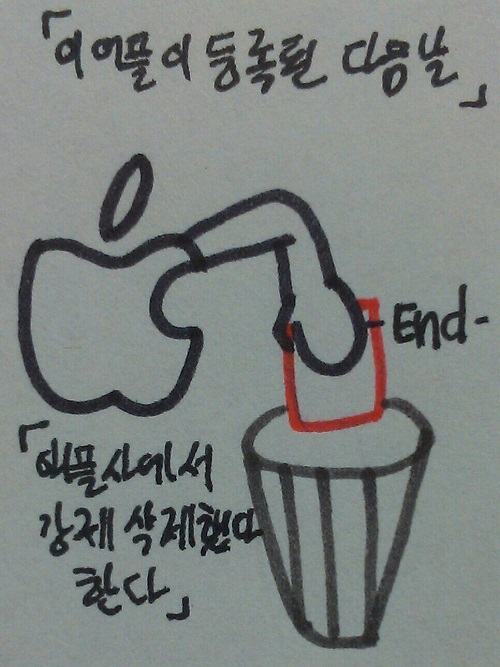 「이 어플이 등록된 다음날」
-End-
「애플사에서
강제 삭제했다
한다」